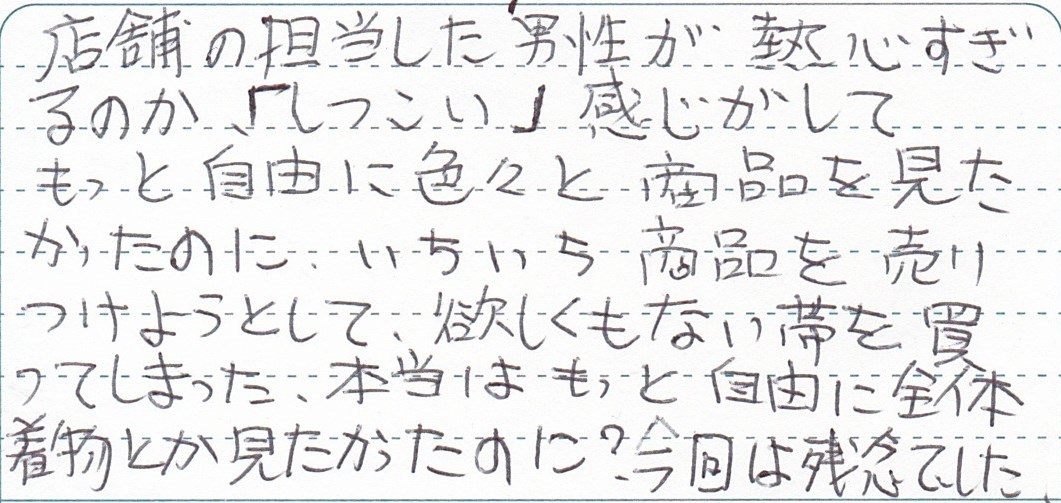 店舗の担当した男性が熱心すぎ
るのか、「しつこい」感じがして
もっと自由に色々と商品を見た
かったのに、いちいち商品を売り
つけようとして、欲しくもない帯を買
ってしまった、本当はもっと自由に全体
着物とか見たかったのに?今回は残念でした